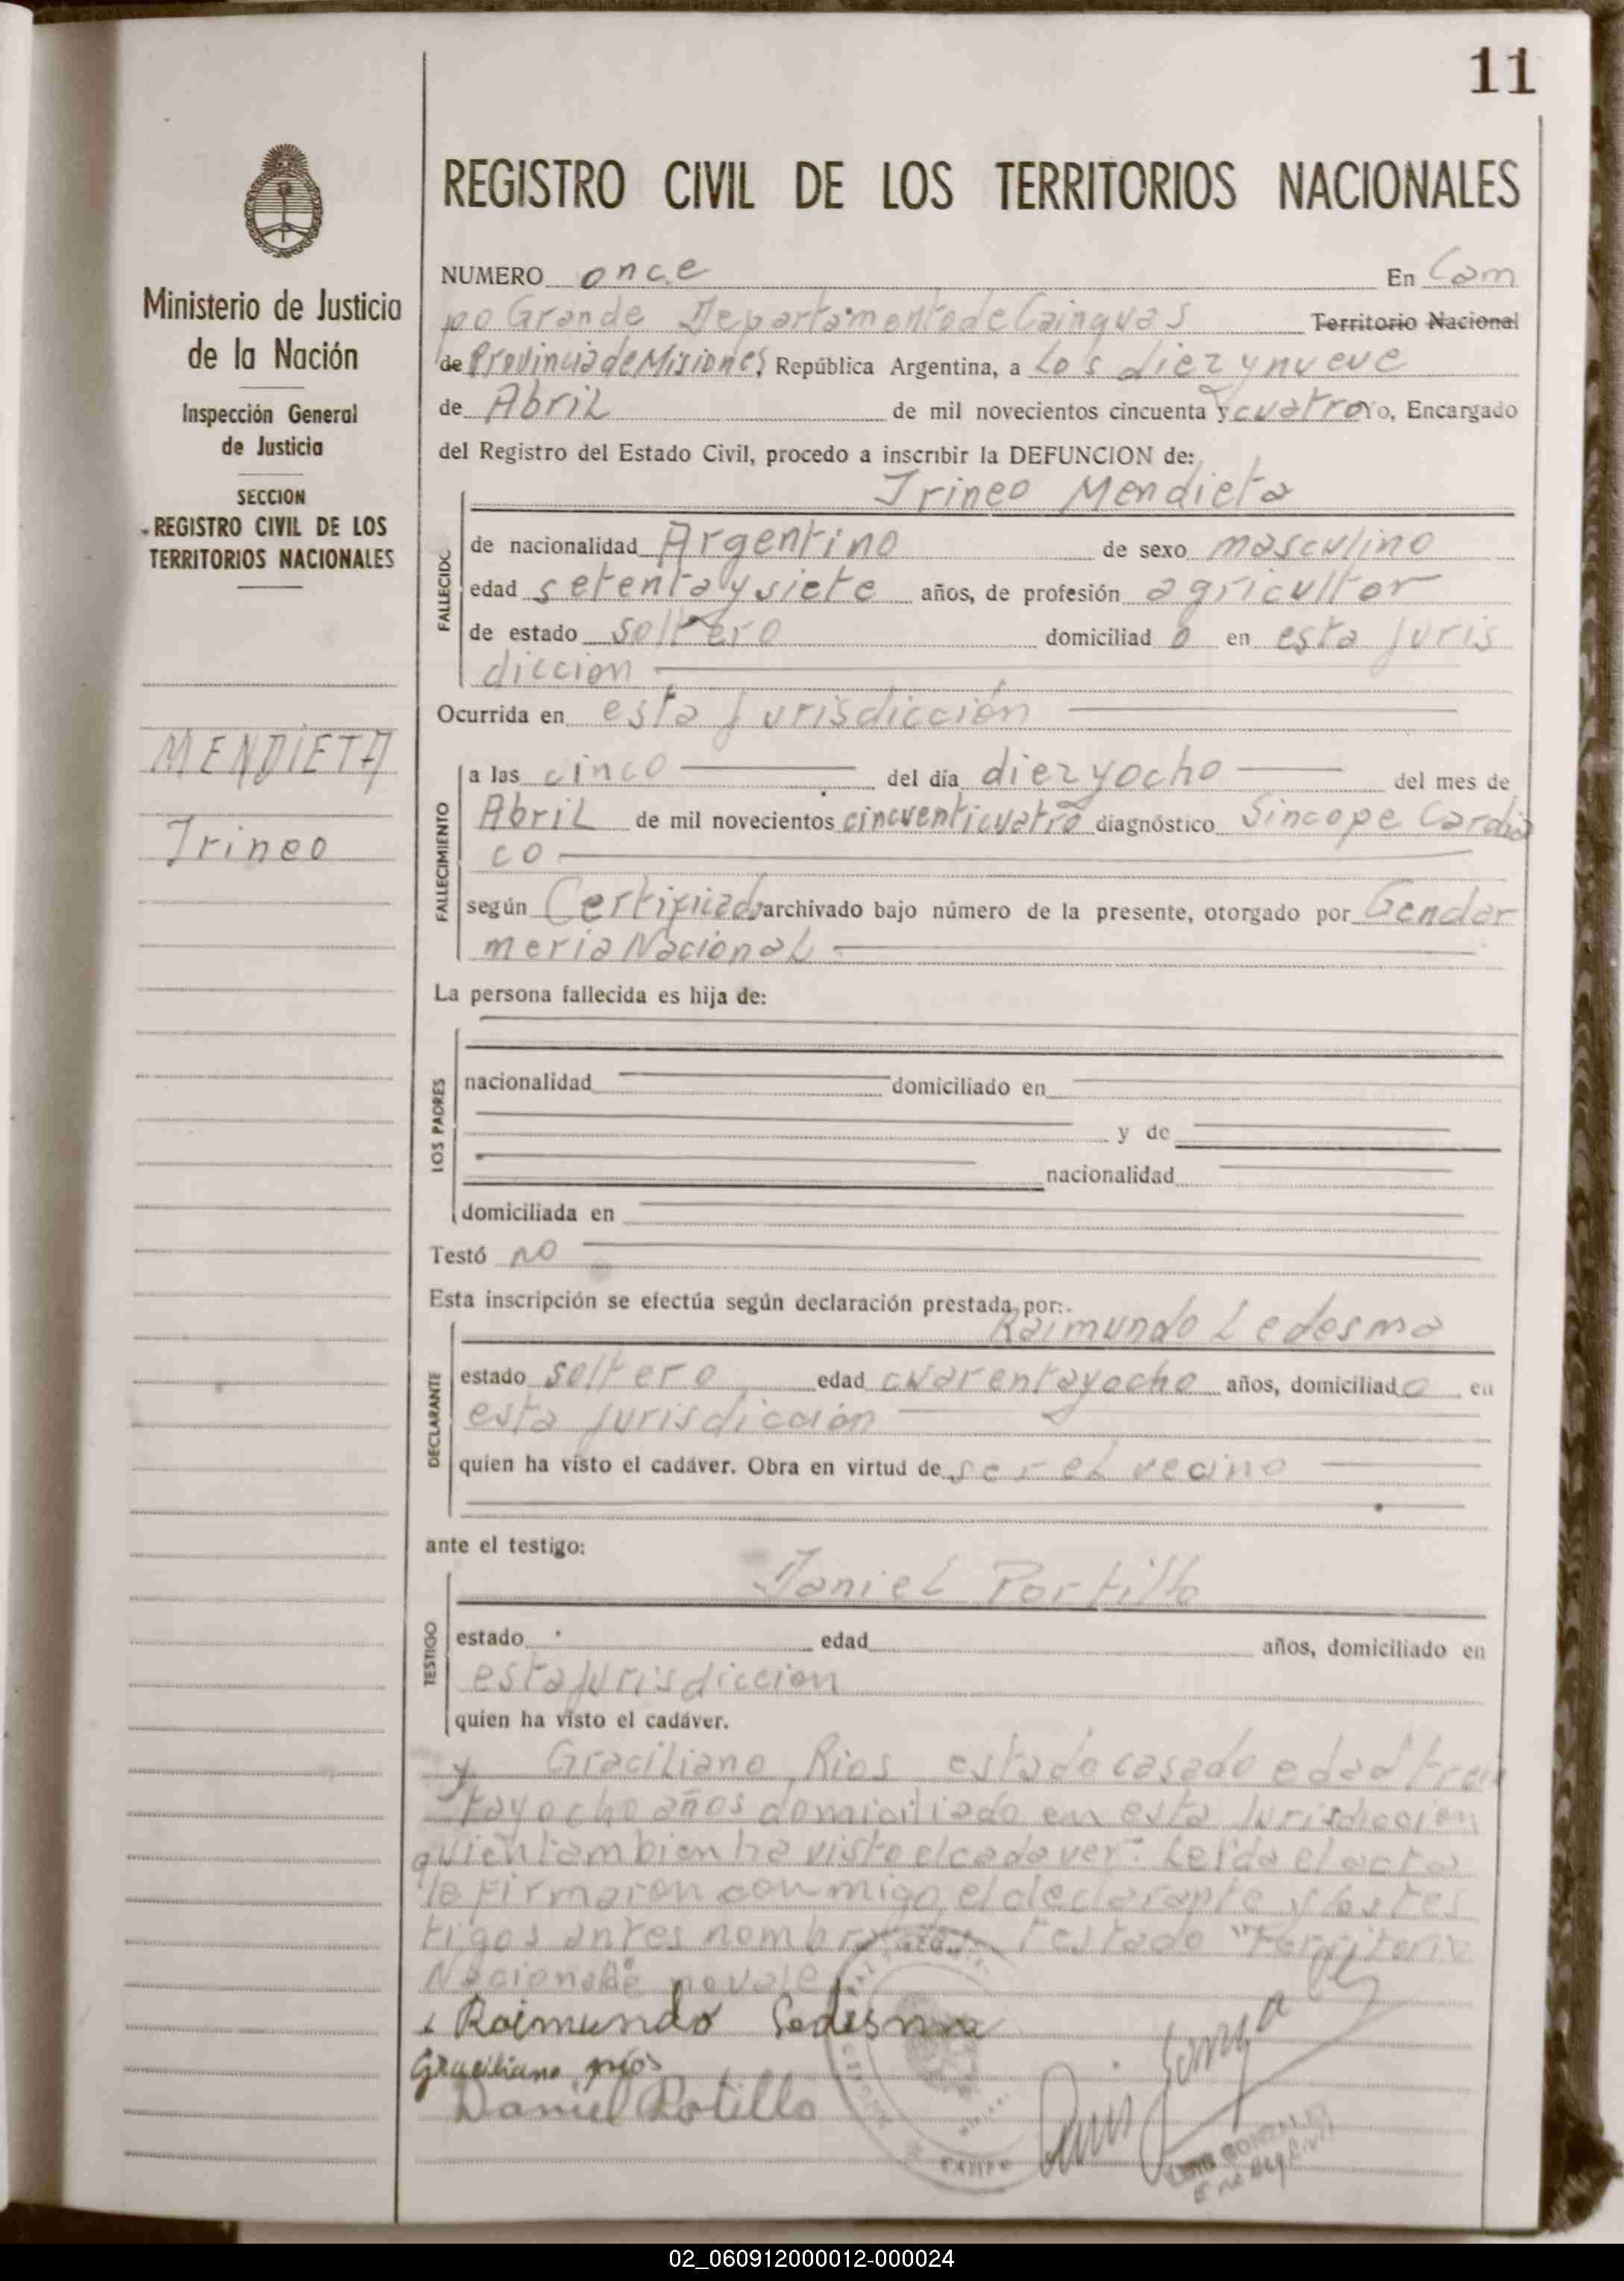 11
REGISTRO CIVIL DE LOS TERRITORIOS NACIONALES
Ministerio de Justicia
de la Nación
Inspección General
de Justicia
SECCION
REGISTRO CIVIL DE LOS
TERRITORIOS NACIONALES
MENDIETA
Irineo
NUMERO once En Cam
po Grande Departamento de Cainguas Territorio Nacional
de Provincia de Misiones, República Argentina, a los diez y nueve
de Abril de mil novecientos cincuenta y cuatro yo, Encargado
del Registro del Estado Civil, procedo a inscribir la DEFUNCION de:
Irineo Mendieta
FALLECIDO
de nacionalidad Argentino de sexo masculino
edad setenta y siete años, de profesión agricultor
de estado soltero domiciliad o en esta juris
diccion
Ocurrida en esta jurisdicción
FALLECIMIENTO
a las cinco del día diez y ocho del mes de
Abril de mil novecientos cincuenticuatro diagnóstico Sincope Cardia
co
según Certificado archivado bajo número de la presente, otorgado por Gendar
meria Nacional
La persona fallecida es hija de:
LOS PADRES
nacionalidad domiciliado en
y de
nacionalidad
domiciliada en
Testó no
Esta inscripción se efectúa según declaración prestada por:
Raimundo Ledesma
DECLARANTE
estado soltero edad cuarenta y ocho años, domiciliad o en
esta jurisdicción
quien ha visto el cadáver. Obra en virtud de ser el vecino
ante el testigo:
Daniel Portillo
TESTIGO
estado edad años, domiciliado en
esta jurisdiccion
quien ha visto el cadáver.
y Graciliano Rios estado casado edad trein
ta y ocho años domiciliado en esta Jurisdiccion
quien tambien ha visto el cadaver: Leida el acta
la firmaron conmigo el declarante y los tes
tigos antes nombrados testado "Territorio
Nacional no vale
Raimundo Ledesma
Graciliano rios
Daniel Potillo
LUIS GONZALEZ
02_060912000012-000024